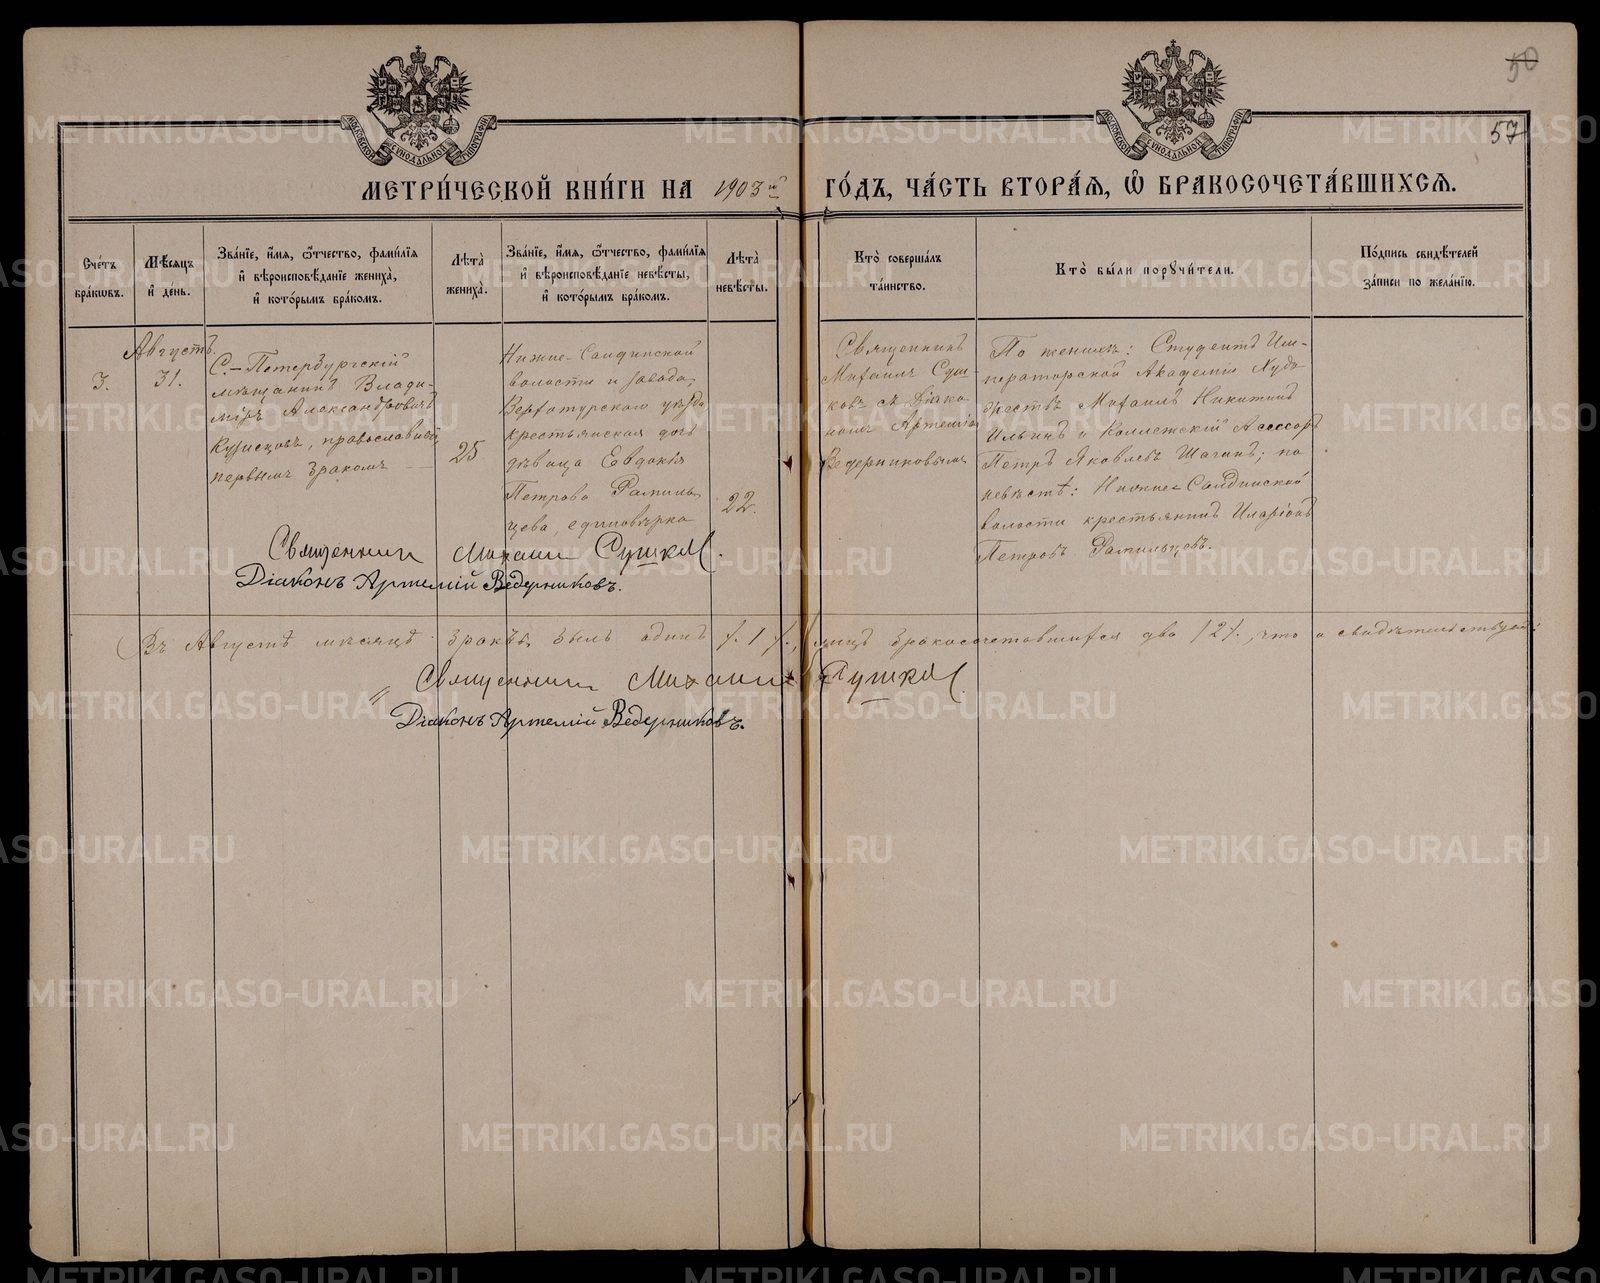 50
57
МОСКОВСКОЙ СѴНОДАЛЬНОЙ ТИПОГРАФІИ
МОСКОВСКОЙ СѴНОДАЛЬНОЙ ТИПОГРАФІИ
МЕТРИ́ЧЕСКОЙ КНИ́ГИ НА 1903й ГО́ДЪ, ЧА́СТЬ ВТОРА́Ѧ, Ѽ БРАКОСОЧЕТА́ВШИХСѦ.
Сче́тъ
бра́кѡвъ.
Мѣ́сѧцъ
и҆ де́нь.
Зва́нїе, и҆́мѧ, ѻ҆́тчество, фами́лїѧ
и҆ вѣроисповѣ́данїе жениха̀,
и҆ кото́рымъ бра́комъ.
Лѣта̀
жениха̀.
Зва́нїе, и҆́мѧ, ѻ҆́тчество, фами́лїѧ
и҆ вѣроисповѣ́данїе невѣ́сты,
и҆ кото́рымъ бра́комъ.
Лѣта̀
невѣ́сты.
Кто̀ соверша́лъ
та́инство.
Кто̀ бы́ли порꙋчи́тели.
По́дпись свидѣ́телей
за́писи по жела́нїю.
3.
Августъ.
31.
С.-Петербургскій
мѣщанинъ Влади-
міръ Александровичъ
православный
первымъ бракомъ
25
Нижне-Салдинской
волости и завода,
Верхотурскаго уѣзда
крестьянская дочь
дѣвица Евдокія
Петрова Фамиль-
цева, единовѣрка
22.
Священникъ
Михаилъ Суш-
ковъ съ Діако-
номъ Артеміемъ
Ведерниковымъ
По женихѣ: Студентъ Им-
ператорской Академіи Худо-
жествъ Михаилъ Никитинъ
Ильинъ и Коллежскій Ассесоръ
Петръ Яковлевъ Шагинъ; по
невѣстѣ: Нижне-Салдинской
волости крестьянинъ Иларіонъ
Петровъ Фамильцевъ.
Священникъ Михаилъ Сушковъ.
Діаконъ Артемій Ведерниковъ.
Въ Августѣ мѣсяцѣ браковъ былъ одинъ /.1/., лицъ бракосочетавшихся два /2/., что и свидѣтельствуемъ:
Священникъ Михаилъ Сушковъ.
Діаконъ Артемій Ведерниковъ.
METRIKI.GASO-URAL.RU